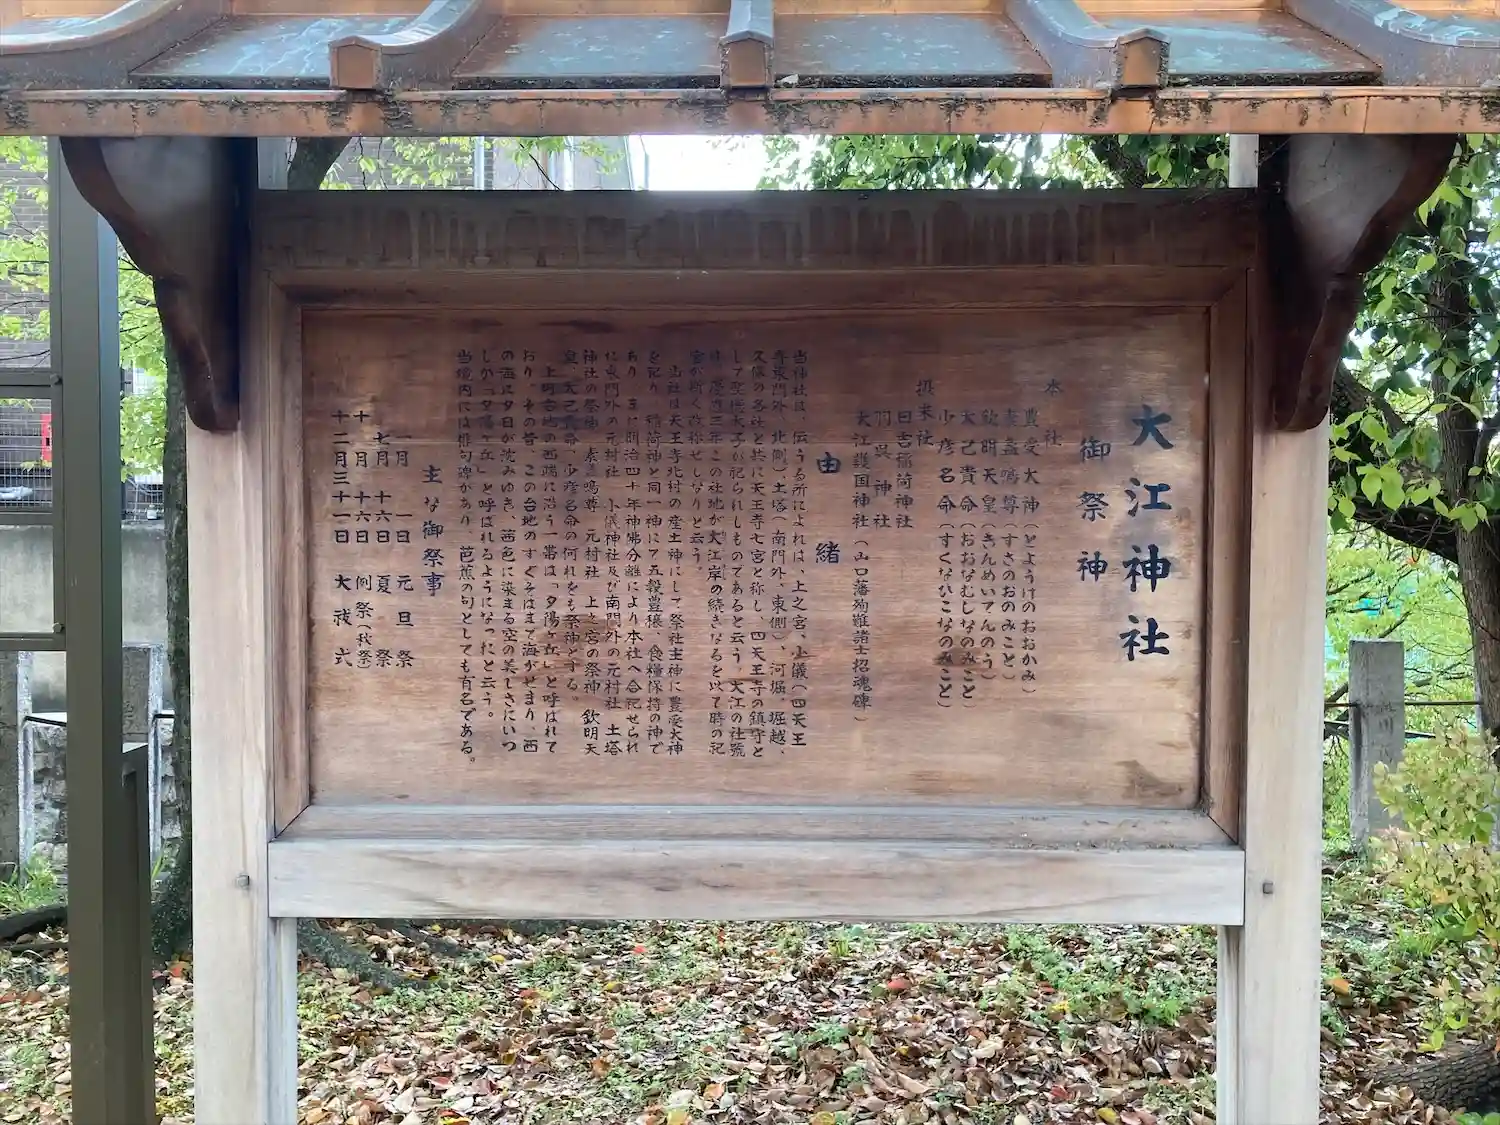 大江神社
御祭神
本社
豊受大神(とようけのおおかみ)
素盞嗚尊(すさのおのみこと)
欽明天皇(きんめいてんのう)
大己貴命(おおなむしなのみこと)
少彦名命(すくなひこなのみこと)
摂末社
日吉稲荷神社
神社
大江護国神社(山口藩殉難諸士招魂碑)
由緒
当神社は、伝うる所によれは、上之宮、小儀(四天王
寺東門外、北側)、土塔(南門外、東側)、河堀、堀越、
久保の各社と共に天王寺七宮と称し、四天王寺の鎮守と
して聖徳太子が祀られしものであると云う、大江の社號
は、慶応三年この社地が大江岸の続きなるを以て時の祀
官が斯く改称せしなりと云う。
当社は天王寺北村の産土神にして祭社主神に豊受大神
を祀り、稲荷神と同一神にて五穀豊穣、食糧保持の神で
あり、また明治四十年神佛分離により本社へ合祀せられ
し東門外の元村社 小儀神社及び南門外の元村社 土塔
神社の祭神 素盞嗚尊 元村社 上之宮の祭神 欽明天
皇、大己貴命、少彦名命の何れをも祭神とする。
上町台地の西端に沿う一帯は「夕陽ヶ丘」と呼ばれて
おり、その昔、この台地のすぐそばまで海がせまり、西
の海に夕日が沈みゆき、茜色に染まる空の美しさにいつ
しか「夕陽ヶ丘」と呼ばれるようになったと云う。
当境内には俳句碑があり、芭蕉の句としても有名である。
主な御祭事
一月 一日 元旦祭
七月 十六日 夏祭
十月 十六日 例祭(秋祭)
十二月三十一日 大祓式